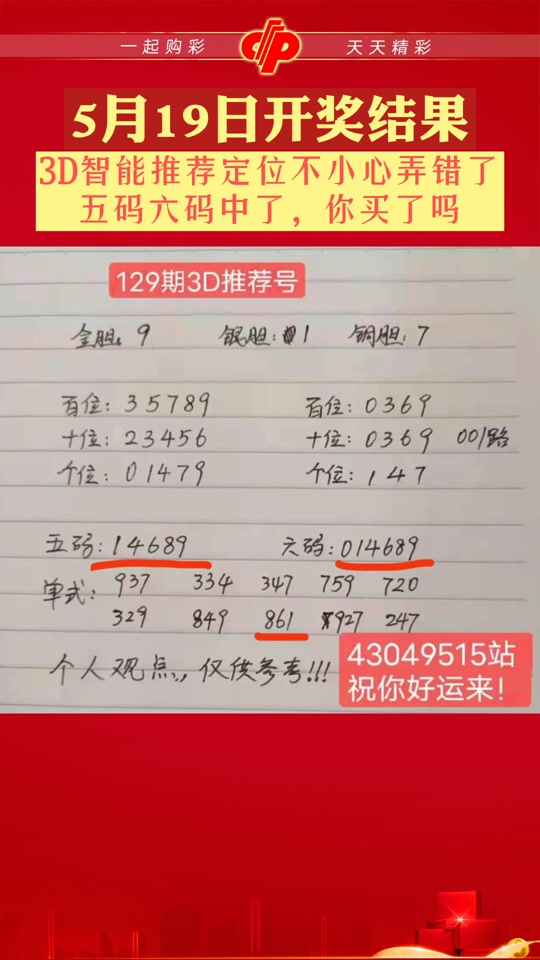 一起购彩 天天精彩
5月19日开奖结果
3D智能推荐定位不小心弄错了
五码六码中了，你买了吗
129期3D推荐号
金胆：9 银胆：1 铜胆：7
百位：35789 百位：0369
十位：23456 十位：0369 001路
个位：01479 个位：147
五码：14689 六码：014689
单式：937 334 347 759 720
329 849 861 927 247
个人观点，仅供参考!!!
43049515站
祝你好运来！